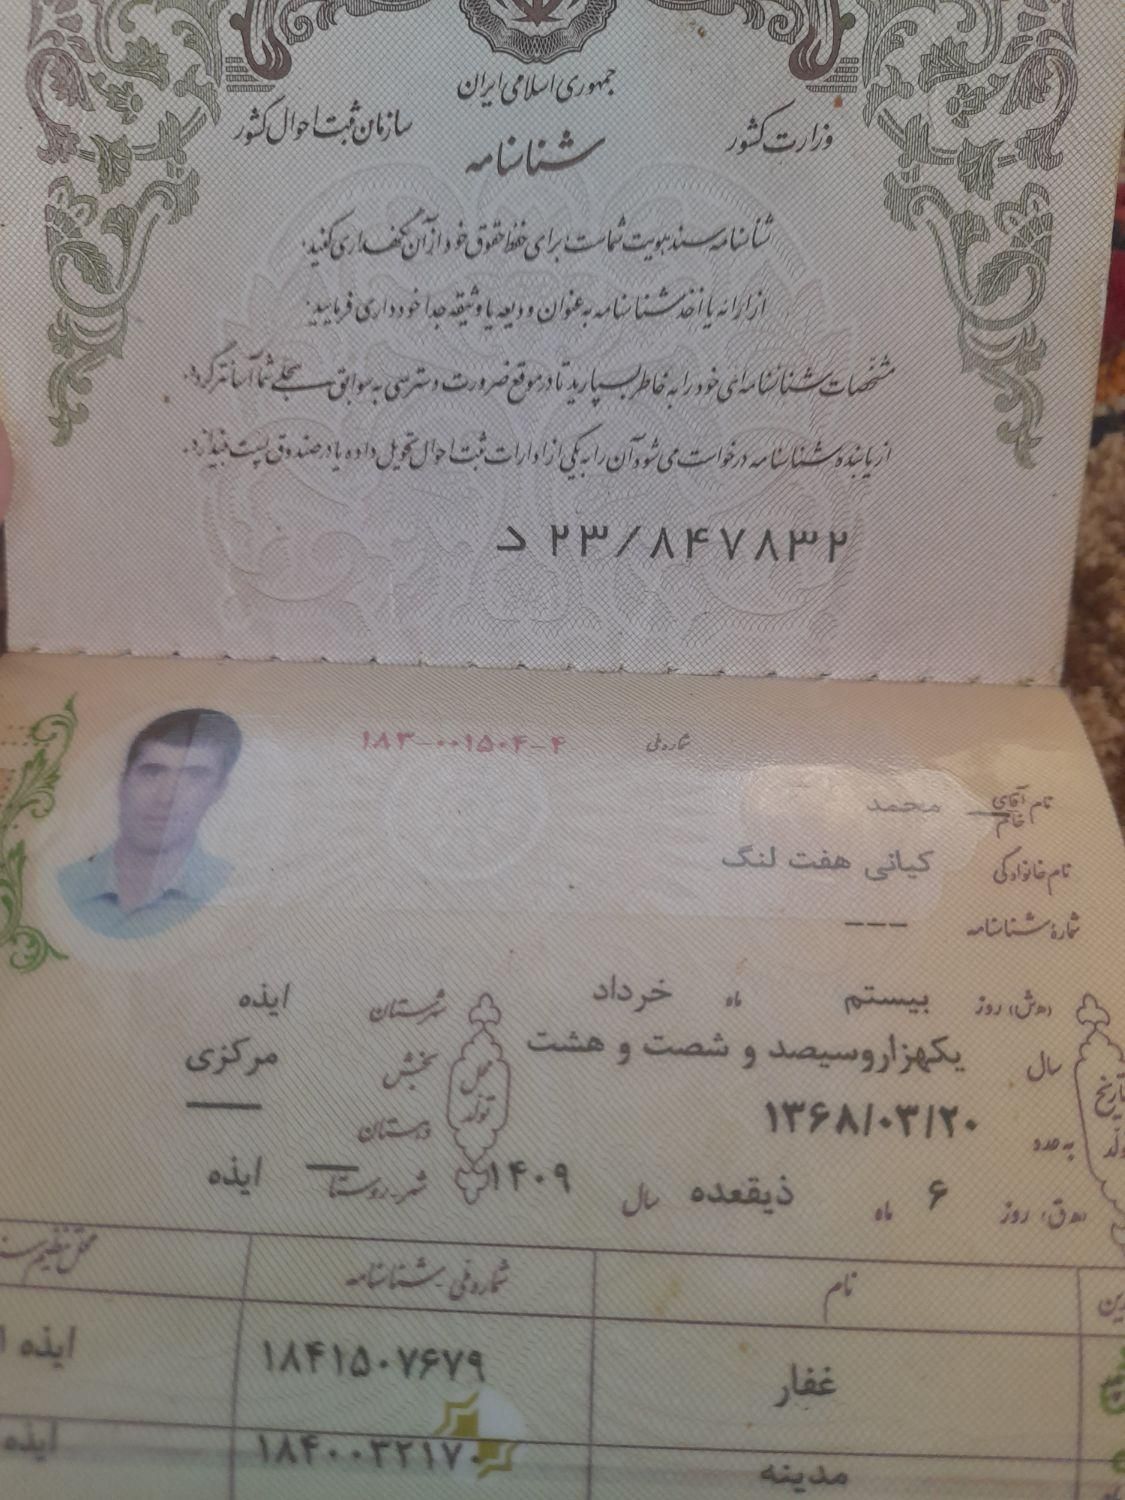 جمهوری اسلامی ایران
وزارت کشور
سازمان ثبت احوال کشور
شناسنامه
شناسنامه سند هویت شماست برای حفظ حقوق خود از آن نگهداری کنید.
از ارائه یا اخذ شناسنامه به عنوان ودیعه یا وثیقه جدا خودداری فرمایید.
مشخصات شناسنامه‌ای خود را به خاطر بسپارید تا در موقع ضرورت دسترسی به سوابق سجلی شما آسانتر گردد.
از یابنده شناسنامه درخواست می‌شود آن را به یکی از ادارات ثبت احوال تحویل داده یا در صندوق پست بیندازد.
د ۲۳/۸۴۷۸۳۲
شماره ملی ۱۸۳-۰۰۱۵۰۴-۴
نام آقای خانم محمد
نام خانوادگی کیانی هفت لنگ
شماره شناسنامه ---
(ه‍.ش) روز بیستم ماه خرداد
سال یکهزاروسیصد و شصت و هشت
به عدد ۱۳۶۸/۰۳/۲۰
(ه‍.ق) روز ۶ ماه ذیقعده سال ۱۴۰۹
محل تولد
شهرستان ایذه
بخش مرکزی
دهستان ——
شهر-روستا ایذه
نام شماره ملی-شناسنامه محل تنظیم
غفار ۱۸۴۱۵۰۷۶۷۹ ایذه
مدینه ۱۸۴۰۰۳۲۱۷۰ ایذه